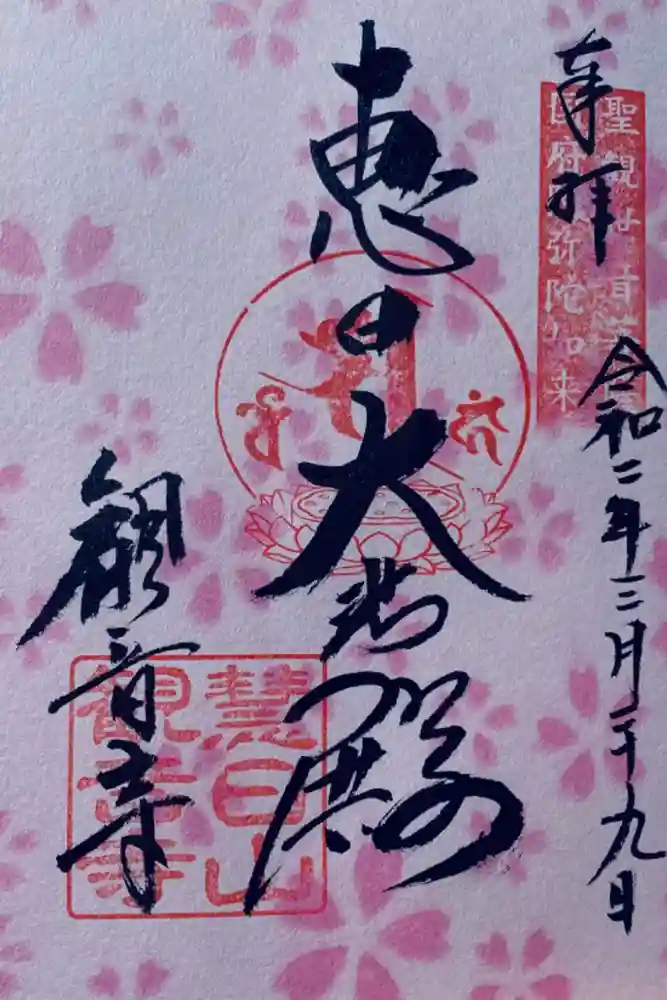 奉拝
聖観世音菩薩
国府阿弥陀如来
令和二年三月二十九日
恵日大悲殿
慧日山
観音寺
観音寺